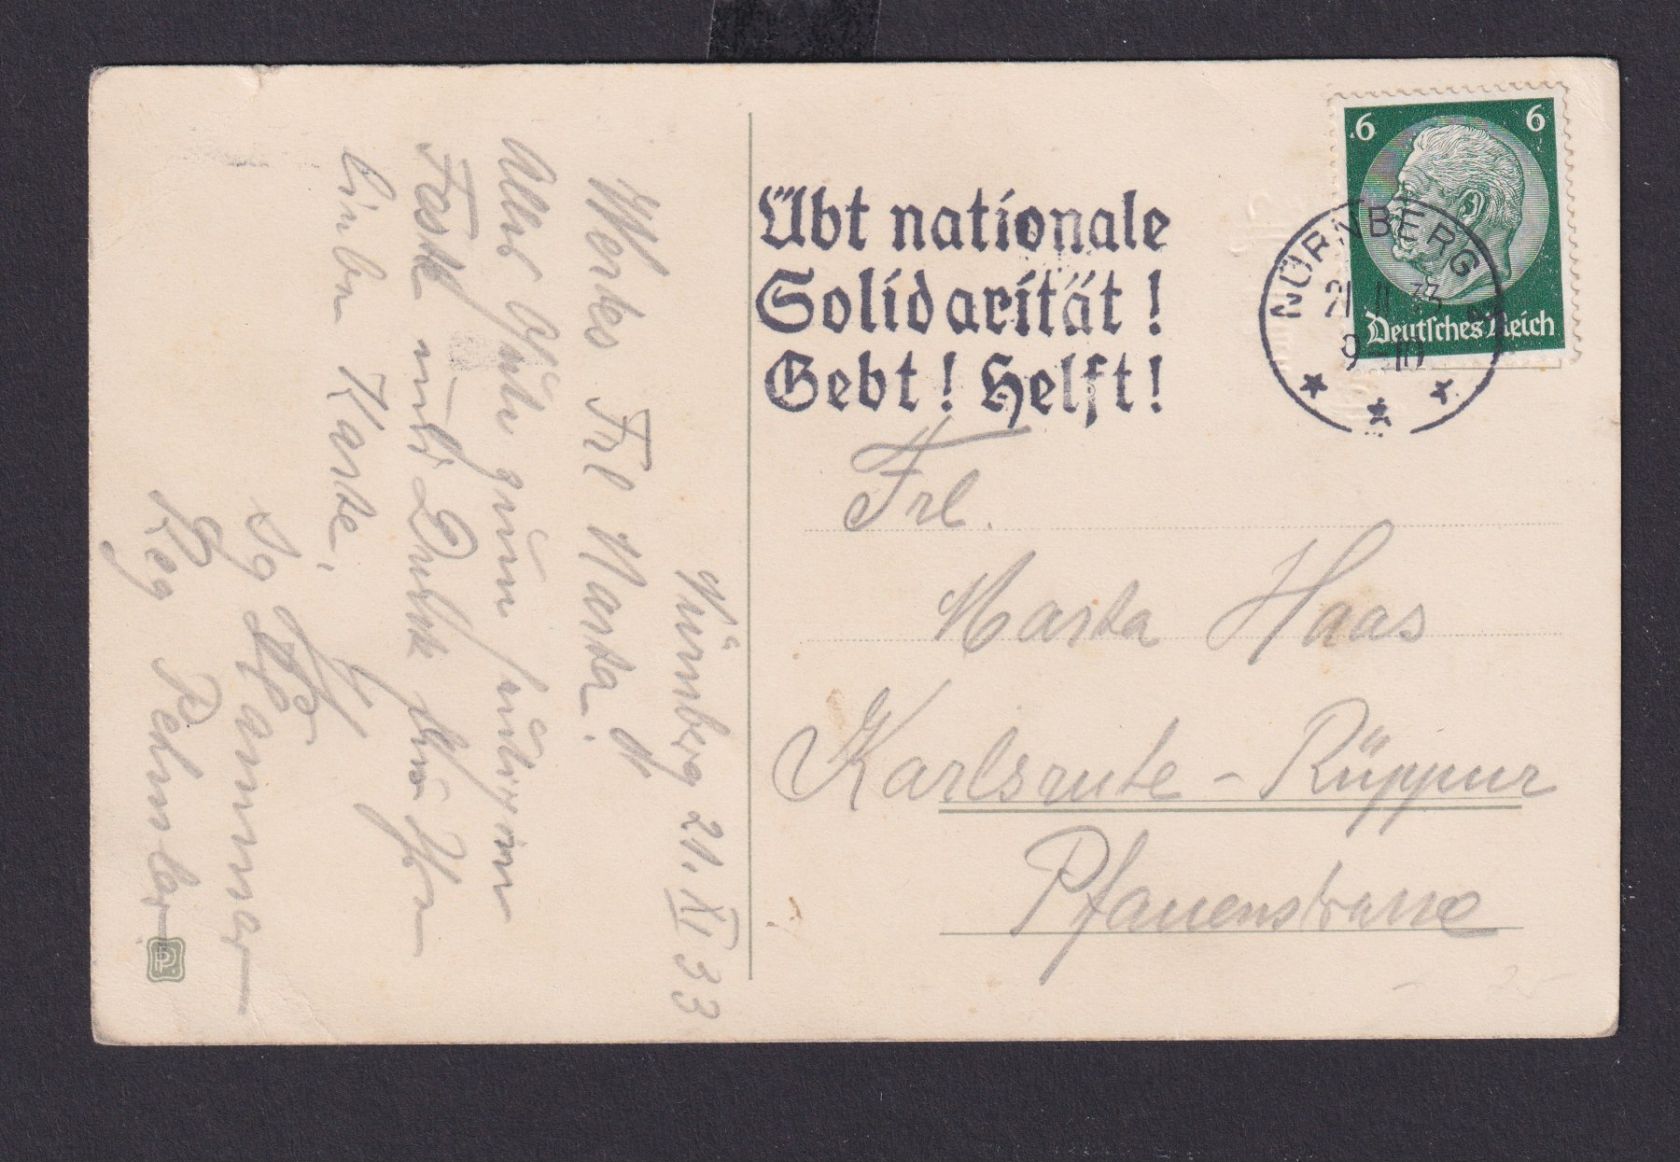 Übt nationale
Solidarität!
Gebt! Helft!
6 6
Deutsches Reich
NÜRNBERG
21.11.33
9-10
Frl.
Marta Haas
Karlsrute-Rüppur
Pfauenstrasse
Nürnberg 21. XI 33
Wertes Frl Marta!
Alles Gute zum
Feste und Dank für Ihre
lieben Karte.
Reg
P.